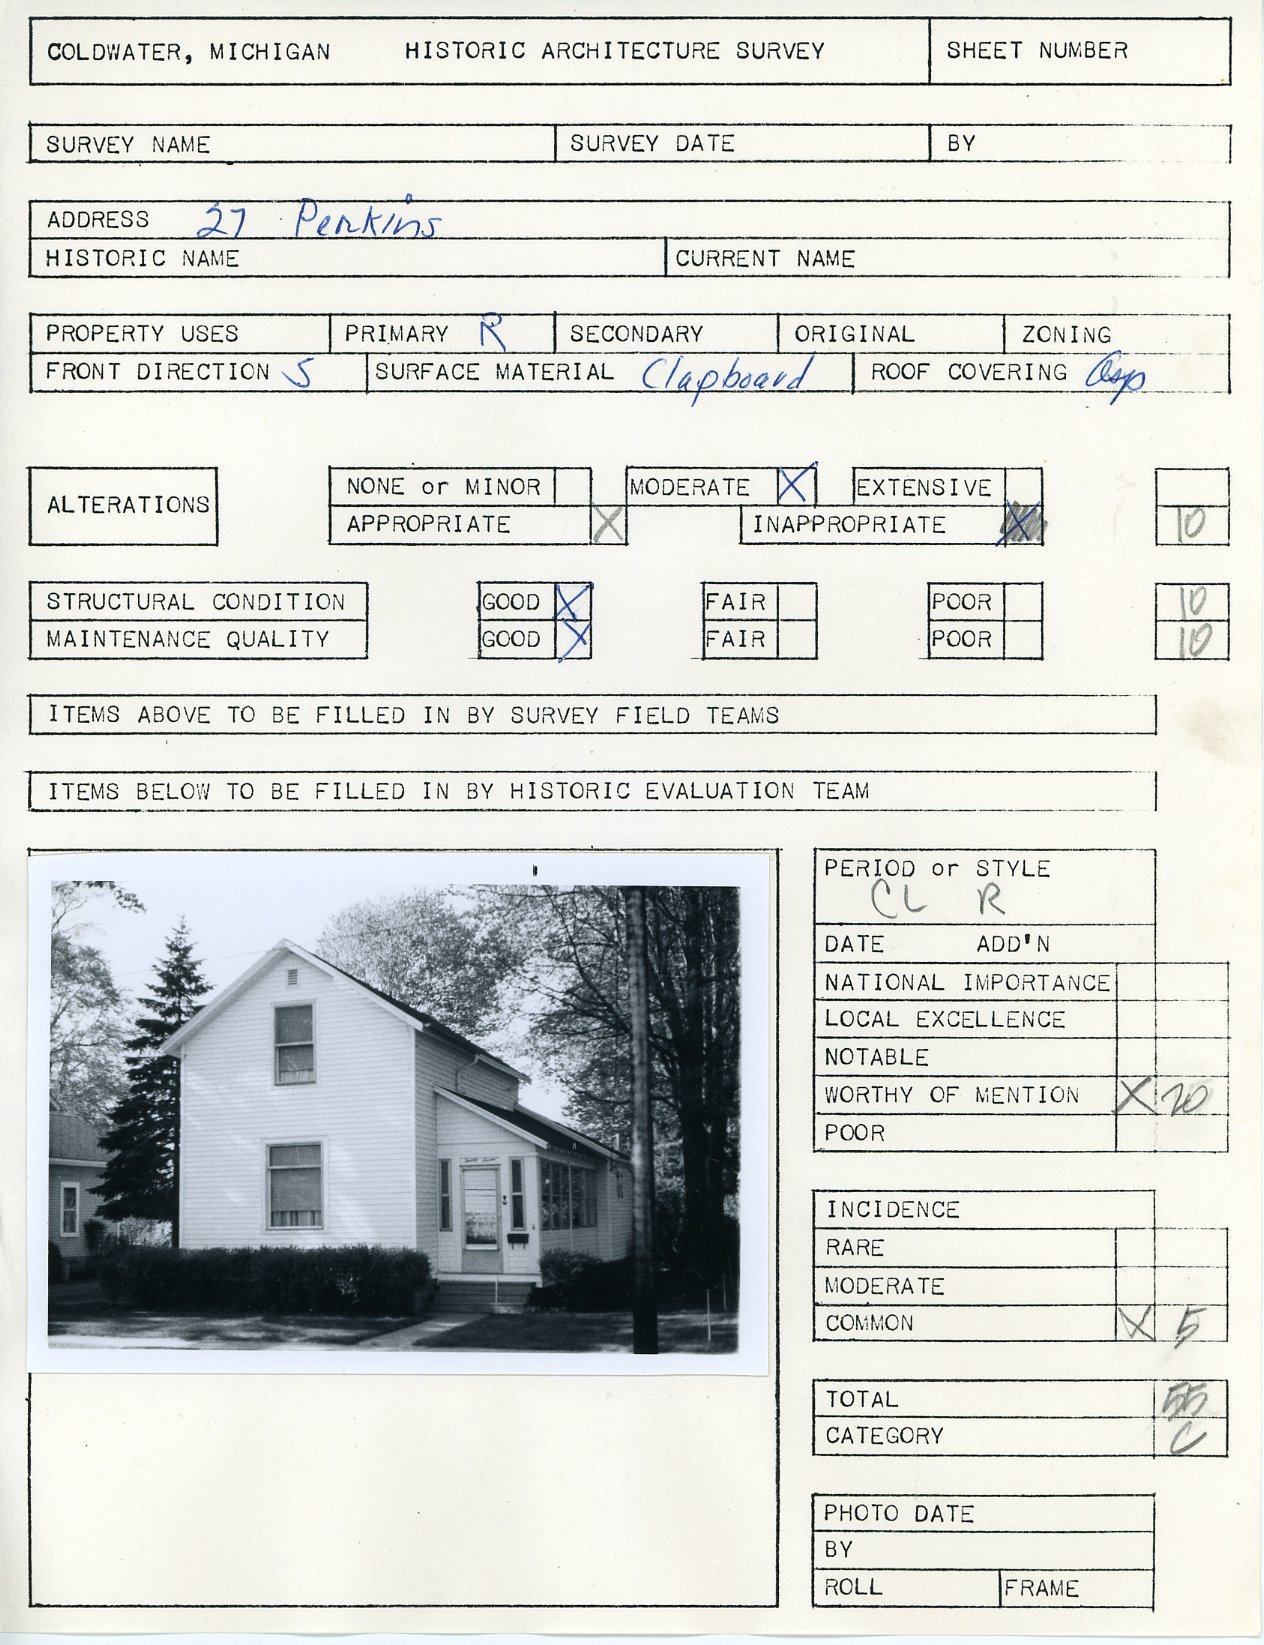 COLDWATER, MICHIGAN HISTORIC ARCHITECTURE SURVEY SHEET NUMBER
SURVEY NAME SURVEY DATE BY
ADDRESS 27 Perkins
HISTORIC NAME CURRENT NAME
PROPERTY USES PRIMARY R SECONDARY ORIGINAL ZONING
FRONT DIRECTION S SURFACE MATERIAL Clapboard ROOF COVERING Asp
ALTERATIONS
NONE or MINOR MODERATE X EXTENSIVE
APPROPRIATE X INAPPROPRIATE X 10
STRUCTURAL CONDITION GOOD X FAIR POOR 10
MAINTENANCE QUALITY GOOD X FAIR POOR 10
ITEMS ABOVE TO BE FILLED IN BY SURVEY FIELD TEAMS
ITEMS BELOW TO BE FILLED IN BY HISTORIC EVALUATION TEAM
PERIOD or STYLE
CL R
DATE ADD'N
NATIONAL IMPORTANCE
LOCAL EXCELLENCE
NOTABLE
WORTHY OF MENTION X 20
POOR
INCIDENCE
RARE
MODERATE
COMMON X 5
TOTAL 55
CATEGORY C
PHOTO DATE
BY
ROLL FRAME